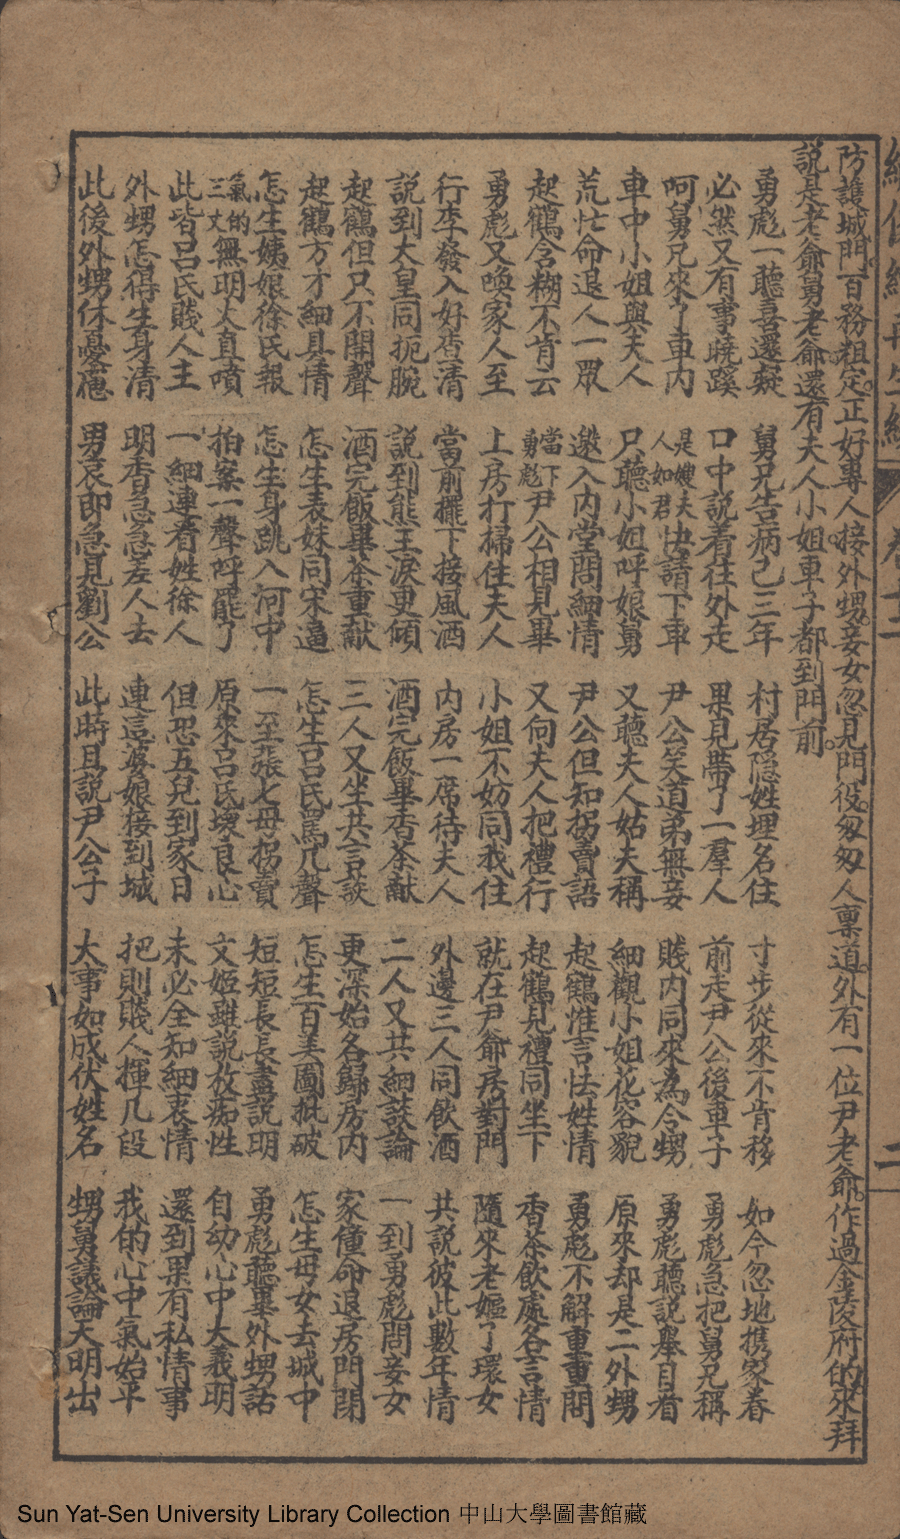 卷十二
二
防護城門百務粗定正好專人接外甥妾女忽見門役匆匆人稟道外有一位尹老爺作過金陵府的來拜
説是老爺舅老爺還有夫人小姐車子都到門前
勇彪一聽喜還疑 舅兄告病已三年 村居隐姓埋名住 寸步從來不肯移 如今忽地携家眷
必然又有事曉蹊 口中説着往外走 果見帶了一羣人 前走尹公後車子 勇彪急把舅兄稱
呵舅兄來了車内 是嫂夫人如君快請下車 尹公笑道弟無妾 賤内同來為令甥 勇彪聽説舉目看
車中小姐與夫人 只聽小姐呼娘舅 又聽夫人姑夫稱 細觀小姐花容貌 原來却是二外甥
荒忙命退人一眾 邀入内堂問細情 尹公但知拐賣語 起鶴惟言怯姓情 勇彪不解重重問
起鶴含糊不肯云 當下勇彪尹公相見畢 又向夫人把禮行 起鶴見禮同坐下 香茶飲處各言情
勇彪又喚家人至 上房打掃住夫人 小姐不妨同我住 就在尹爺房對門 隨來老嫗了環女
行李發入好查清 當前擺下接風酒 内房一席待夫人 外邊三人同飲酒 共説彼此數年情
説到太皇同扼腕 説到熊王淚更傾 酒完飯畢香茶献 二人又共細談論 一到勇彪問妾女
起鶴但只不開聲 酒完飯畢茶重献 三人又坐共言談 更深始各歸房内 家僮命退房門閉
起鶴方才細具情 怎生表妹同宋逼 怎生吕氏罵几聲 怎生百美圖批破 怎生母女去城中
怎生姨娘徐氏報 怎生身跳入河中 一至張七毋拐賣 短短長長盡説明 勇彪聽畢外甥話
氣的三丈無明火直噴 拍案一聲呼罷了 原來吕氏壞良心 文姬雖説放痴性 自幼心中大義明
此皆吕氏賤人主 一細連着姓徐人 但恐五兒到家日 未必全知細衷情 還到果有私情事
外甥怎得生身清 明香急急差人去 連這婆娘接到城 把則賤人揮几段 我的心中氣始平
此後外甥休憂慮 男哀即急見劉公 此時且説尹公子 大事如成伏姓名 甥舅議論天明出
Sun Yat-Sen University Library Collection 中山大學圖書館藏